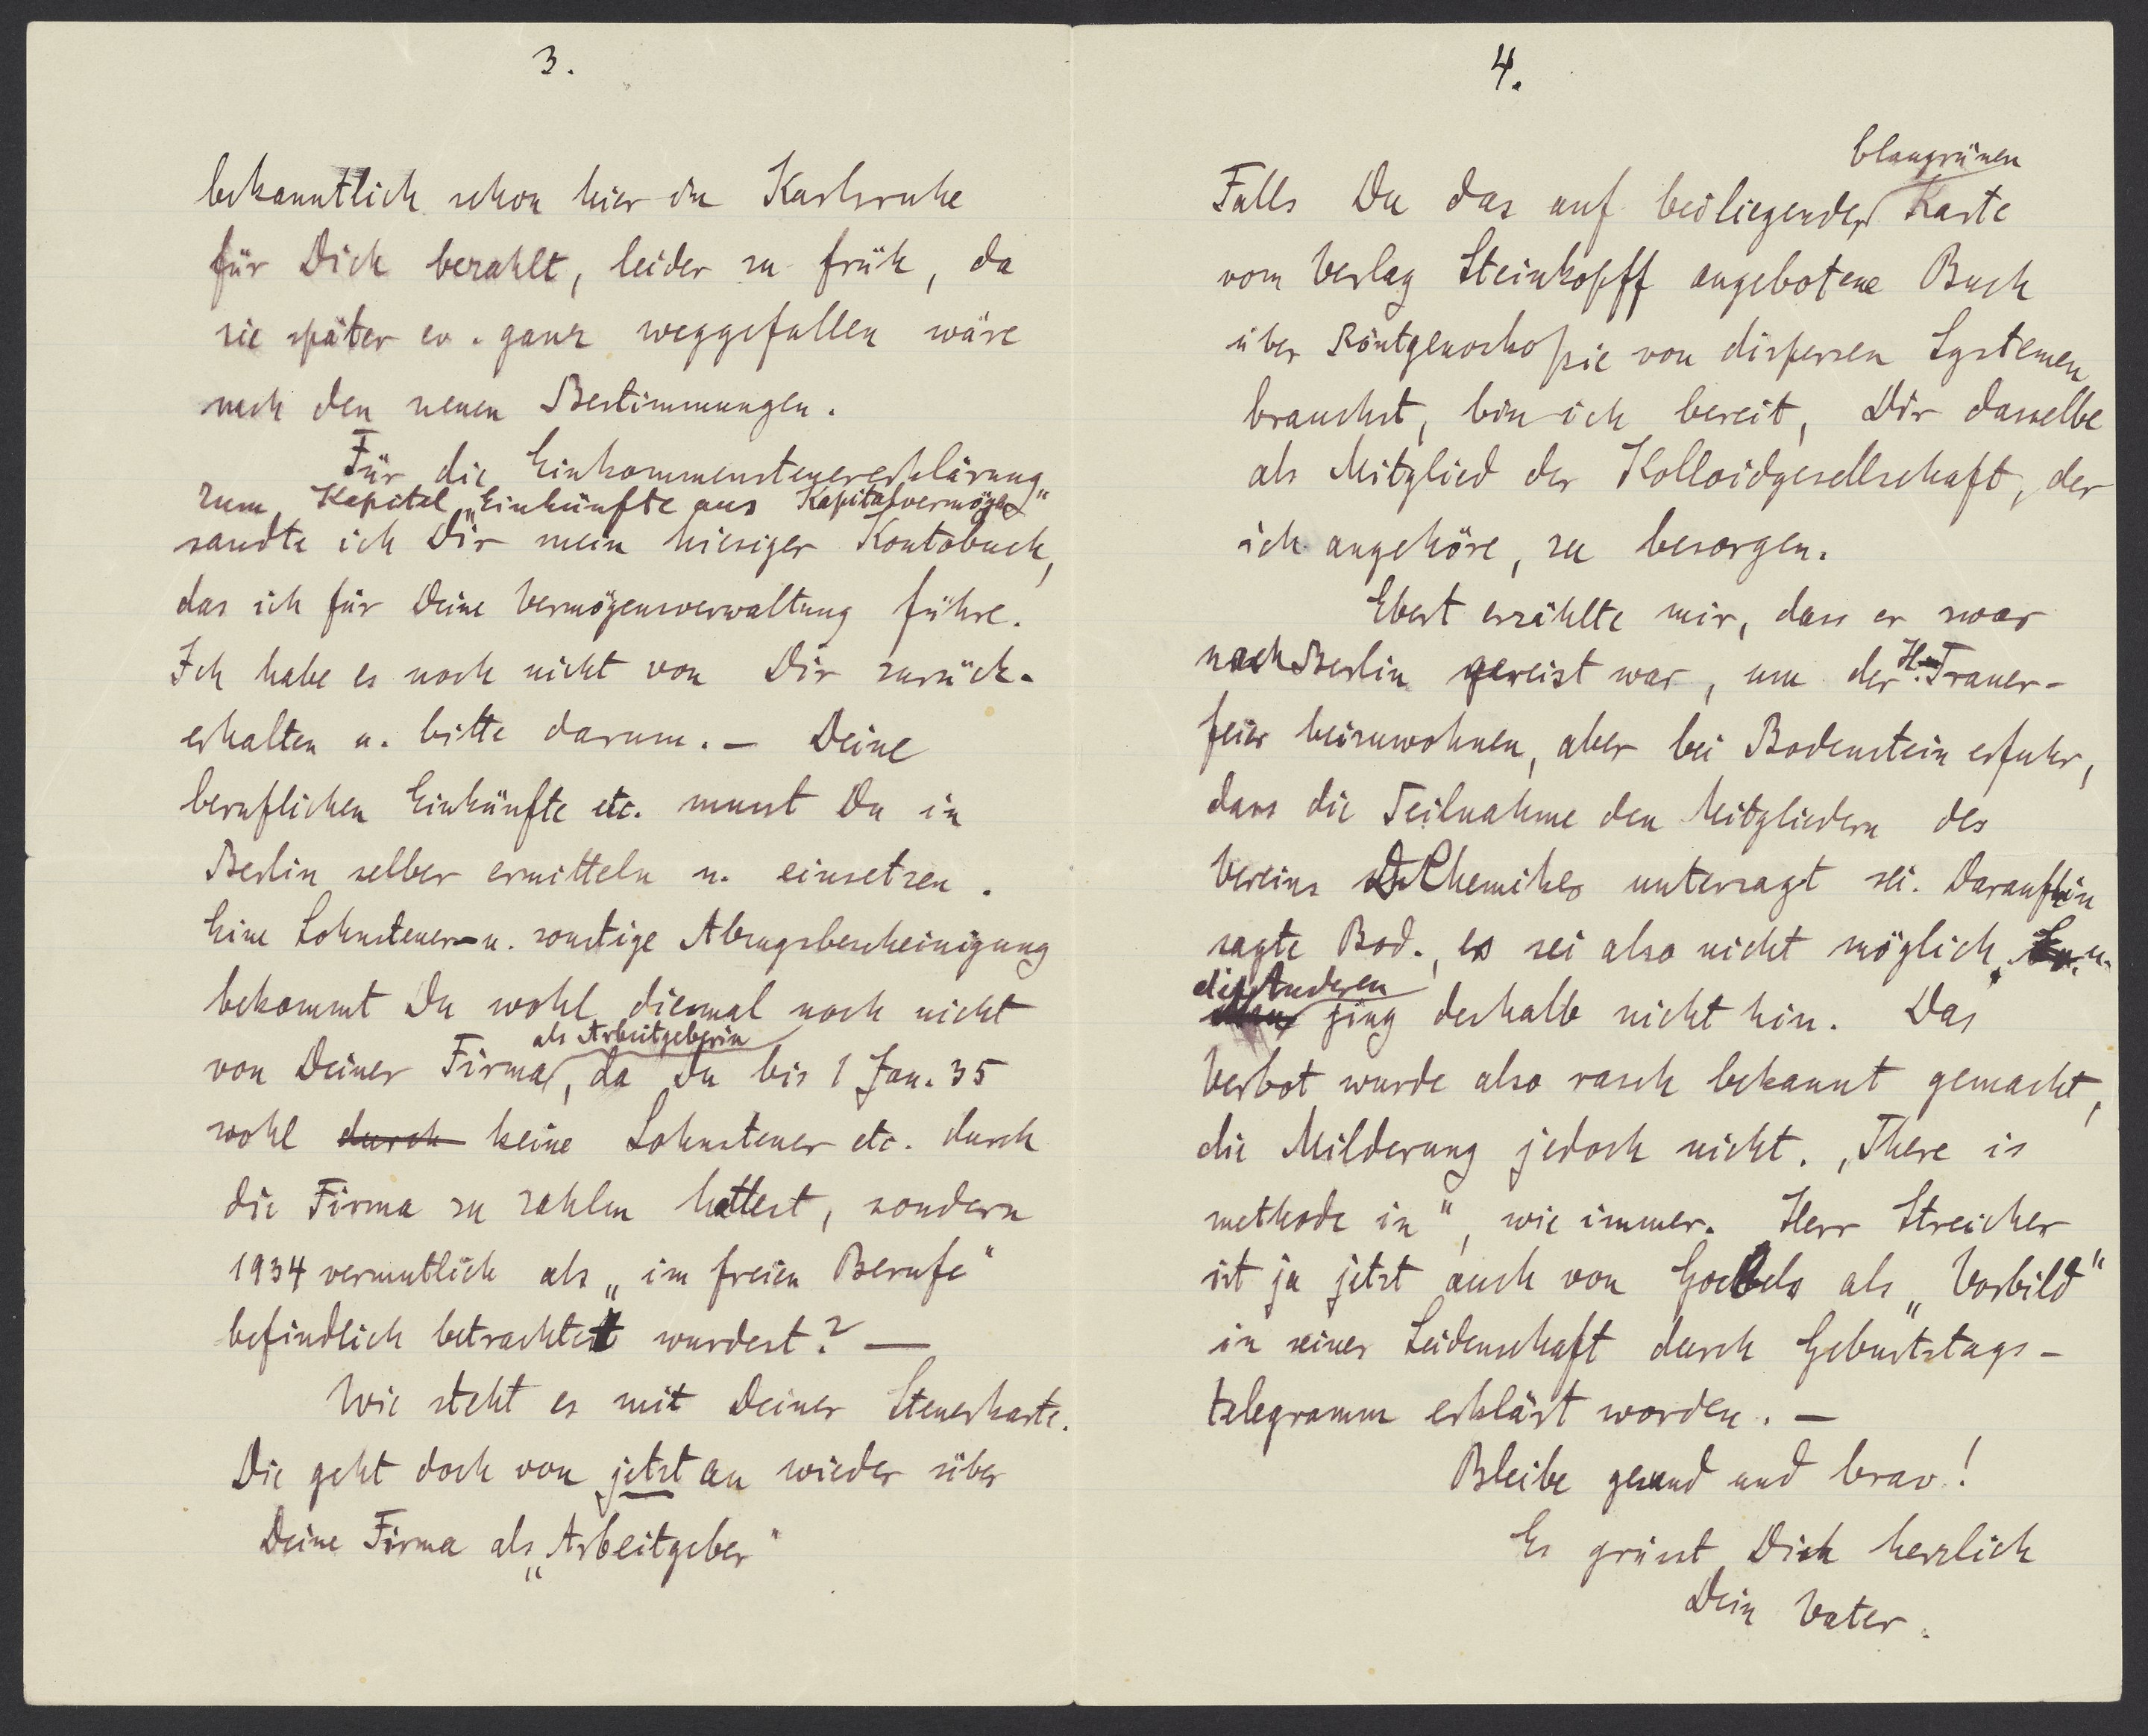 3.
bekanntlich schon hier in Karlsruhe
für Dich bezahlt, leider zu früh, da
sie später ev. ganz weggefallen wäre
nach den neuen Bestimmungen.
Für die Einkommensteuererklärung
zum Kapitel „Einkünfte aus Kapitalvermögen"
sandte ich Dir mein hiesiges Kontobuch,
das ich für Deine Vermögensverwaltung führe.
Ich habe es noch nicht von Dir zurück-
erhalten u. bitte darum. — Deine
beruflichen Einkünfte etc. musst Du in
Berlin selber ermitteln u. einsetzen.
Eine Lohnsteuer- u. sonstige Abzugsbescheinigung
bekommt Du wohl diesmal noch nicht
als Arbeitgeberin
von Deiner Firma, da Du bis 1 Jan. 35
wohl durch keine Lohnsteuer etc. durch
die Firma zu zahlen hattest, sondern
1934 vermutlich als „im freien Berufe"
befindlich betrachtet wurdest? —
Wie steht es mit Deiner Steuerkarte.
Die geht doch von jetzt an wieder über
Deine Firma als „Arbeitgeber"
4.
blaugrünen
Falls Du das auf beiliegender Karte
vom Verlag Steinkopff angebotene Buch
über Röntgenoskopie von dispersen Systemen
brauchst, bin ich bereit, Dir dasselbe
als Mitglied der Kolloidgesellschaft, der
ich angehöre, zu besorgen.
Ebert erzählte mir, dass er zwar
nach Berlin gereist war, um der H.-Trauer-
feier beizuwohnen, aber bei Bodenstein erfuhr,
dass die Teilnahme den Mitgliedern des
Vereins D. Chemiker untersagt sei. Daraufhin
sagte Bod., es sei also nicht möglich, u.
die Anderen
ging deshalb nicht hin. Das
Verbot wurde also rasch bekannt gemacht,
die Milderung jedoch nicht. „There is
methode in", wie immer. Herr Streicher
ist ja jetzt auch von Goebbels als „Vorbild"
in seiner Leidenschaft durch Geburtstags-
telegramm erklärt worden. —
Bleibe gesund und brav!
Es grüsst Dich herzlich
Dein Vater.